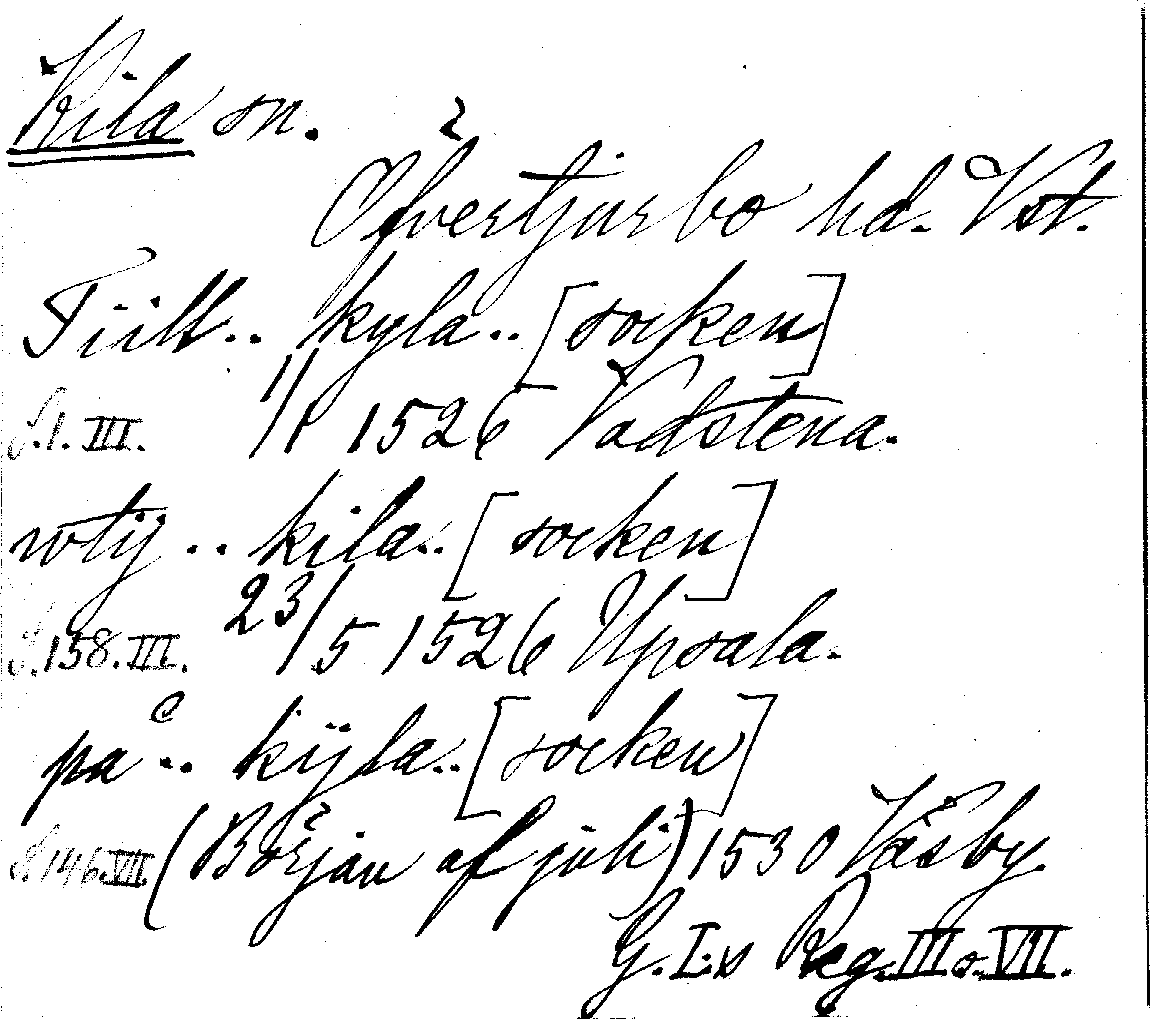 Kila sn.
Öfvertjurbo hd. Vst.
Tiill.. kyla.. [socken]
S.1. III. 1/1 1526 Vadstena.
wtij .. kila.. [socken]
S.158. III. 23/5 1526 Upsala.
på .. kÿla.. [socken]
S.146. VII. (Början af juli) 1530 Väsby.
G. I:s Reg. III o. VII.